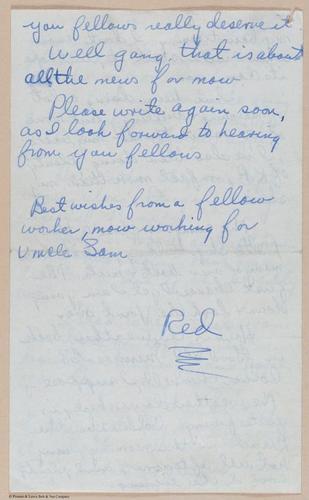 you fellows really deserve it
Well gang, that is about
all the news for now
Please write again soon,
as I look forward to hearing
from you fellows
Best wishes from a fellow
worker, now working for
Uncle Sam
Red